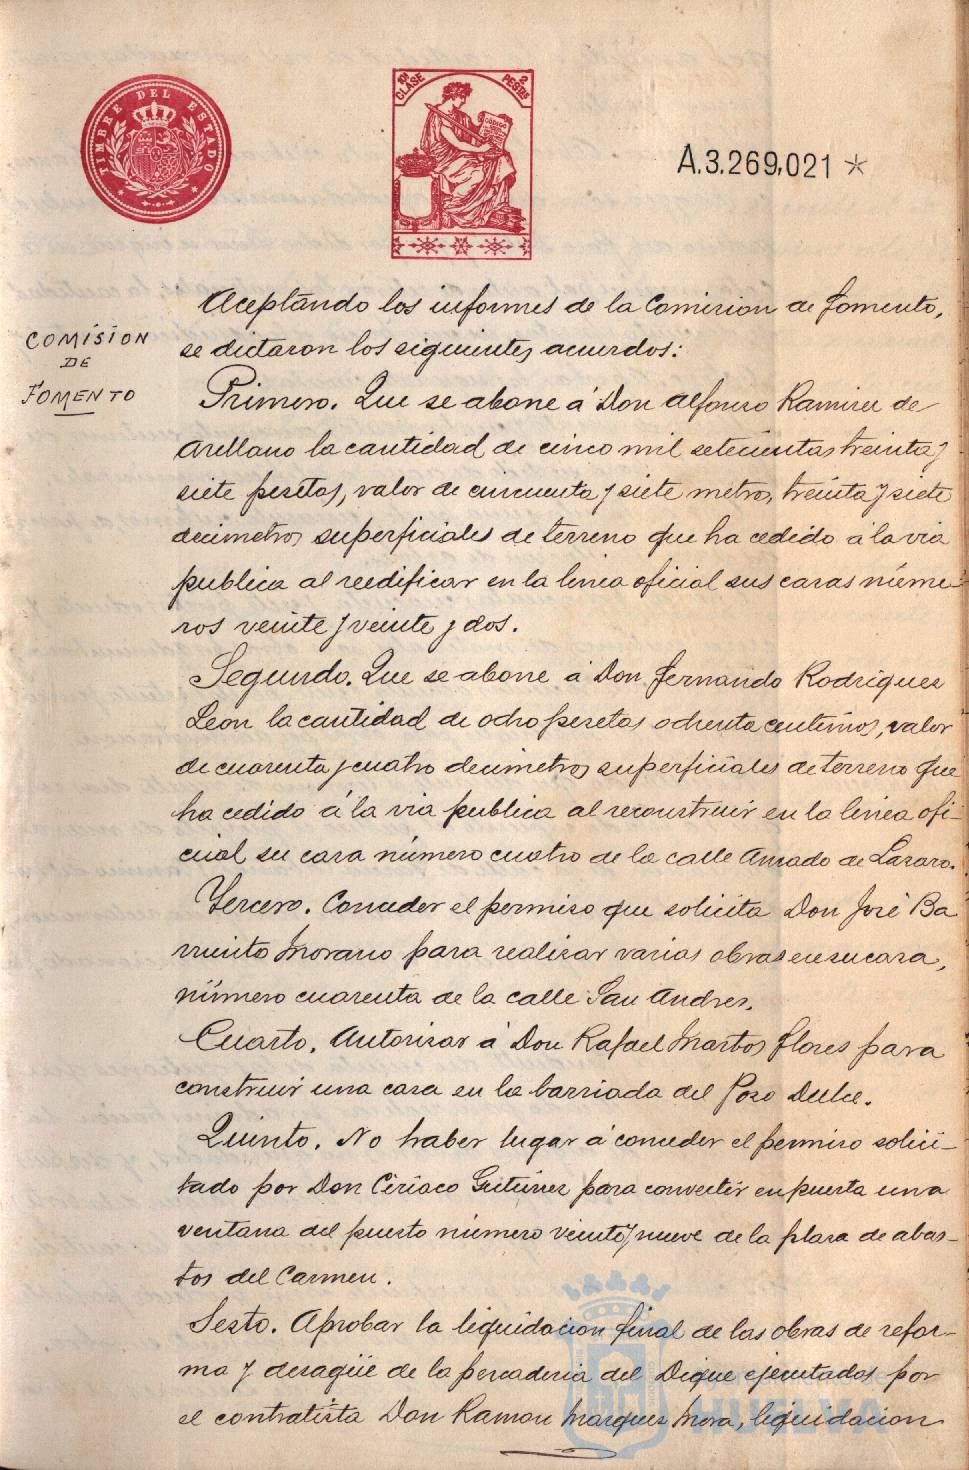 TIMBRE DEL ESTADO
11ª CLASE
2 PESETAS
CODIGO
A.3.269,021 *
COMISION
DE
FOMENTO
Aceptando los informes de la Comision de Fomento,
se dictaron los siguientes acuerdos:
Primero. Que se abone á Don Alfonso Ramirez de
Arellano la cantidad de cinco mil setecientas treinta y
siete pesetas, valor de cincuenta y siete metros, treinta y siete
decimetros superficiales de terreno que ha cedido á la via
publica al reedificar en la linea oficial sus casas núme-
ros veinte y veinte y dos.
Segundo. Que se abone á Don Fernando Rodriguez
Leon la cantidad de ocho pesetas ochenta centimos, valor
de cuarenta y cuatro decimetros superficiales de terreno que
ha cedido á la via publica al reconstruir en la linea ofi-
cial su casa número cuatro de la calle Amado de Lazaro.
Tercero. Conceder el permiso que solicita Don José Ba
rrunto Morano para realizar varias obras en su casa,
número cuarenta de la calle San Andres.
Cuarto. Autorizar á Don Rafael Martos Flores para
construir una casa en la barriada del Pozo Dulce.
Quinto. No haber lugar á conceder el permiso solici-
tado por Don Ciriaco Gutierrez para convertir en puerta una
ventana del puesto número veinte y nueve de la plaza de abas-
tos del Carmen.
Sexto. Aprobar la liquidacion final de las obras de refor-
ma y desagüe de la pescaderia del Dique ejecutados por
el contratista Don Ramon Marquez Mora, liquidacion
Ayuntamiento de
HUELVA